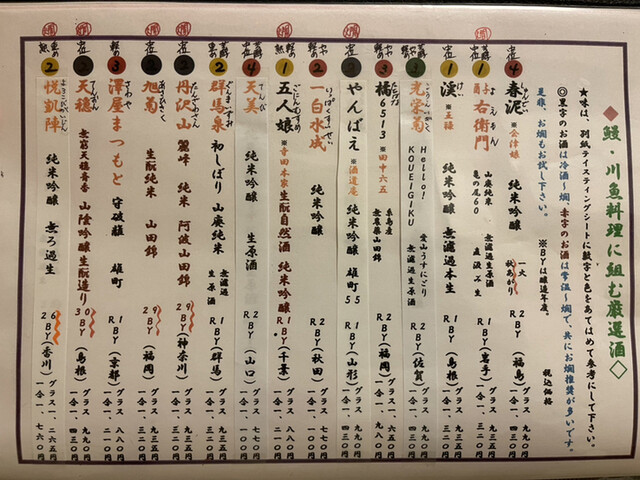 ◇鰻・川魚料理に組む厳選酒◇
★味は、別紙テイスティングシートに数字と色をあてはめて参考にして下さい。
◎黒字のお酒は冷酒～燗、赤字のお酒は常温～燗で、共にお燗推奨が多いです。
是非、お燗もお試し下さい。 ※BYは醸造年度。 税込価格
4 春泥 ※会津娘 純米吟醸 一火 秋あがり R2BY(福島) グラス 九九〇円 一合一、四三〇円
1 酉右衛門 よえもん 山廃純米 無濾過生原酒 亀の尾60 直汲み生 R1BY(岩手) グラス 九三五円 一合一、三二〇円
1 渓 ※玉櫻 純米吟醸 無濾過本生 R1BY(島根) グラス 九三五円 一合一、三二〇円
光栄菊 Hello! KOUEIGIKU 無濾過生原酒 R2BY(佐賀) グラス 九九〇円 一合一、四三〇円
3 橘6513 ※田中六五 糸島産 無農薬山田錦 R2BY(福岡)
やんばえ ※酒道庵 純米吟醸 雄町55 R1BY(山形) グラス 九九〇円 一合一、四三〇円
2 一白水成 いっぱくすいせい 純米吟醸 R2BY(秋田) グラス 七七〇円 一合一、一〇〇円
1 五人娘 ごにんむすめ ※寺田本家 生酛自然酒 純米吟醸 R1BY(千葉)
4 天美 てんび 純米吟醸 生原酒 R2BY(山口) グラス 七七〇円 一合一、一〇〇円
2 群馬泉 ぐんまいずみ 初しぼり 山廃純米 無濾過 生原酒 R1BY(群馬) グラス 九三五円 一合一、三二〇円
2 丹沢山 たんざわさん 麗峰 純米 阿波山田錦 29BY(神奈川) グラス 九三五円 一合一、三二〇円
旭菊 あさひきく 生酛純米 山田錦 29BY(福岡) グラス 九三五円 一合一、三二〇円
3 澤屋まつもと さわや 守破離 雄町 R1BY(京都) グラス 八八〇円
2 天穏 てんおん 無窮天穏 山陰吟醸生酛造り 30BY(島根) グラス 九九〇円 一合一、四三〇円
2 悦凱陣 よろこびがいじん 純米吟醸 無ろ過生 26BY(香川) グラス一、二六五円 一合一、七六〇円